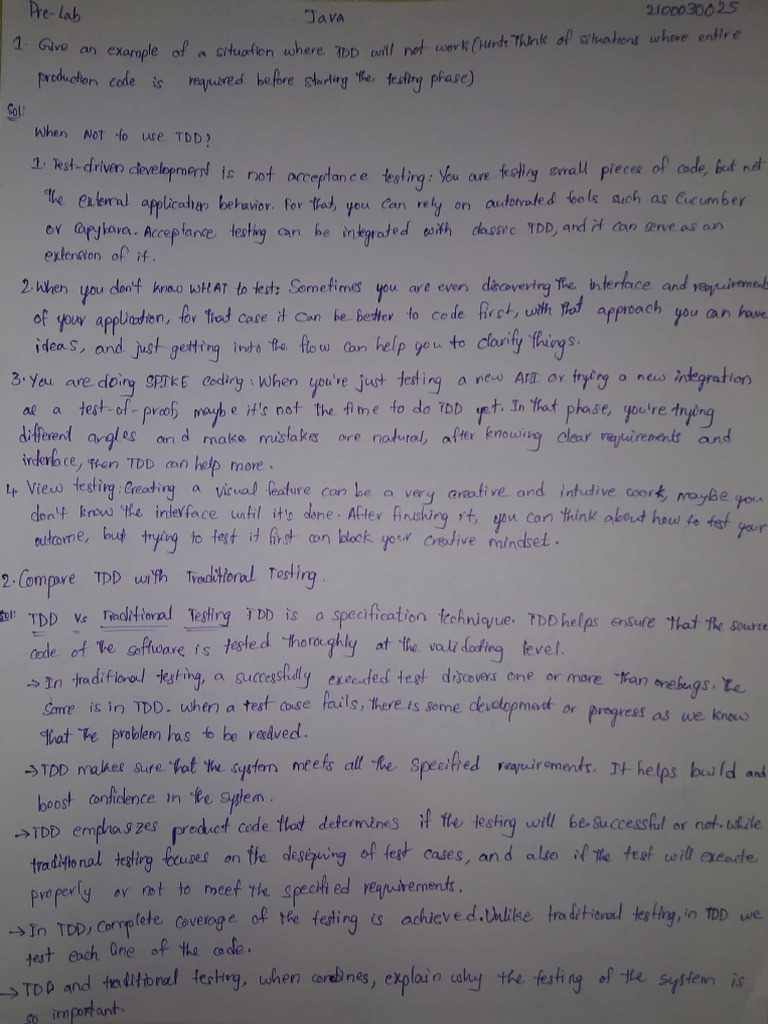 Pre-Lab Java 2100030025
1. Give an example of a situation where TDD will not work (Hint: Think of situations where entire
production code is required before starting the testing phase)
Sol:
When NOT to use TDD?
1. Test-driven development is not acceptance testing: You are testing small pieces of code, but not
the external application behavior. For that, you can rely on automated tools such as Cucumber
or Capybara. Acceptance testing can be integrated with classic TDD, and it can serve as an
extension of it.
2. When you don't know WHAT to test: Sometimes you are even discovering the interface and requirements
of your application, for that case it can be better to code first, with that approach you can have
ideas, and just getting into the flow can help you to clarify things.
3. You are doing SPIKE coding: When you're just testing a new API or trying a new integration
as a test-of-proof, maybe it's not the time to do TDD yet. In that phase, you're trying
different angles and make mistakes are natural, after knowing clear requirements and
interface, then TDD can help more.
4. View testing: Creating a visual feature can be a very creative and intutive work, maybe you
don't know the interface until it's done. After finishing it, you can think about how to test your
outcome, but trying to test it first can block your creative mindset.
2. Compare TDD with Traditional Testing.
Sol: TDD Vs Traditional Testing TDD is a specification technique. TDD helps ensure that the source
code of the software is tested thoroughly at the validating level.
→ In traditional testing, a successfully executed test discovers one or more than onebugs. The
same is in TDD. when a test case fails, there is some development or progress as we know
that the problem has to be resolved.
→ TDD makes sure that the system meets all the specified requirements. It helps build and
boost confidence in the system.
→ TDD emphaszes product code that determines if the testing will be successful or not. while
traditional testing focuses on the desiguing of test cases, and also if the test will execute
properly or not to meet the specified requirements.
→ In TDD, complete coverage of the testing is achieved. Unlike traditional testing, in TDD we
test each line of the code.
→ TDD and traditional testing, when combines, explain why the testing of the system is
so important.